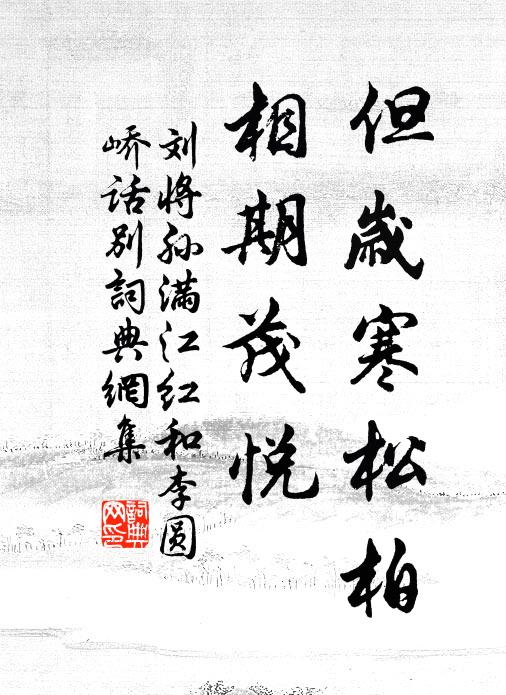 但岁寒松柏
相期茂悦
刘将孙满江红和李圆
峤话别词典网集
词典
网印